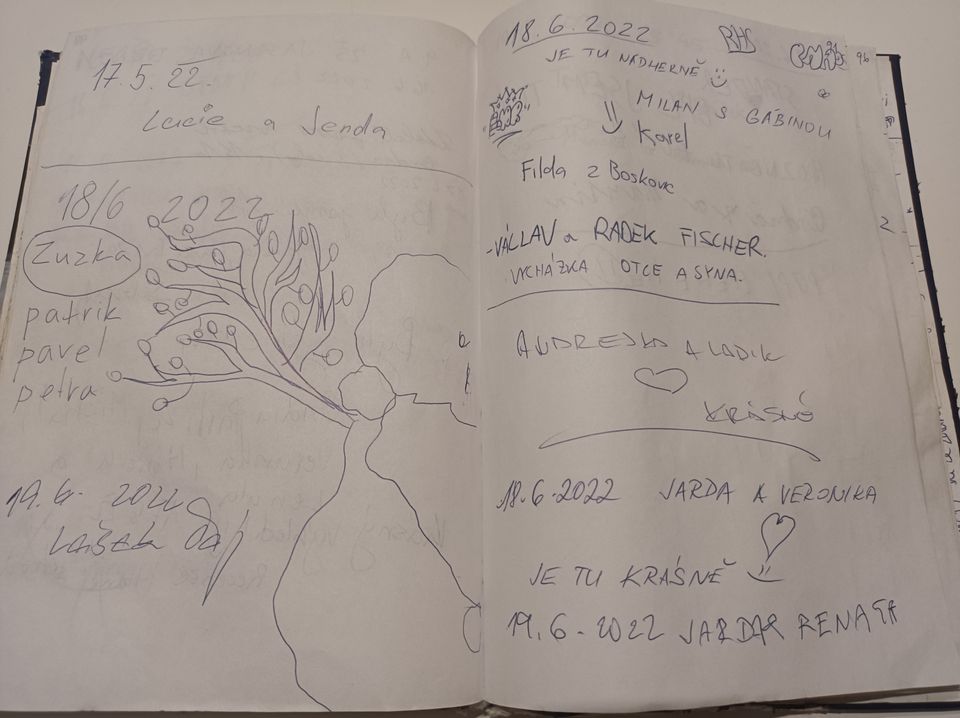 17.5.22.
Lucie a Jenda
18/6 2022
Zuzka
patrik
pavel
petra
19.6. 2022
18.6.2022
JE TU NÁDHERNĚ
MILAN S GÁBINOU
Karel
Filda z Boskovc
-VÁCLAV a RADEK FISCHER.
VYCHÁZKA OTCE A SYNA.
ANDREJKA A LADIK
KRÁSNÓ
18.6.2022 JARDA A VERONIKA
JE TU KRÁSNĚ
19.6.2022 JARDA RENATA